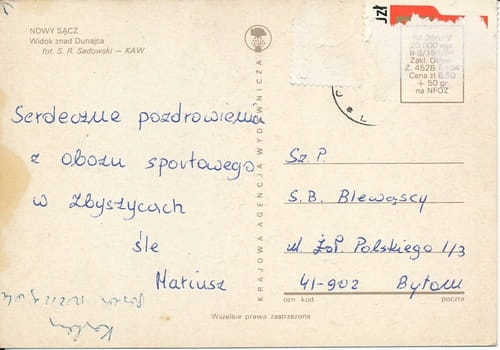 NOWY SĄCZ
Widok znad Dunajca
fot. S. R. Sadowski — KAW
Serdeczne pozdrowienia
z obozu sportowego
w Zbyszycach
śle
Mariusz
KRAJOWA AGENCJA WYDAWNICZA
zł
20.000
Z. 4528
Cena zł 6.50
+ 50 gr
na NFOZ
Sz. P.
S.B. Blewąscy
ul. Żoł. Polskiego 1/3
41-902 Bytom
ozn kod poczta
Wszelkie prawa zastrzeżone